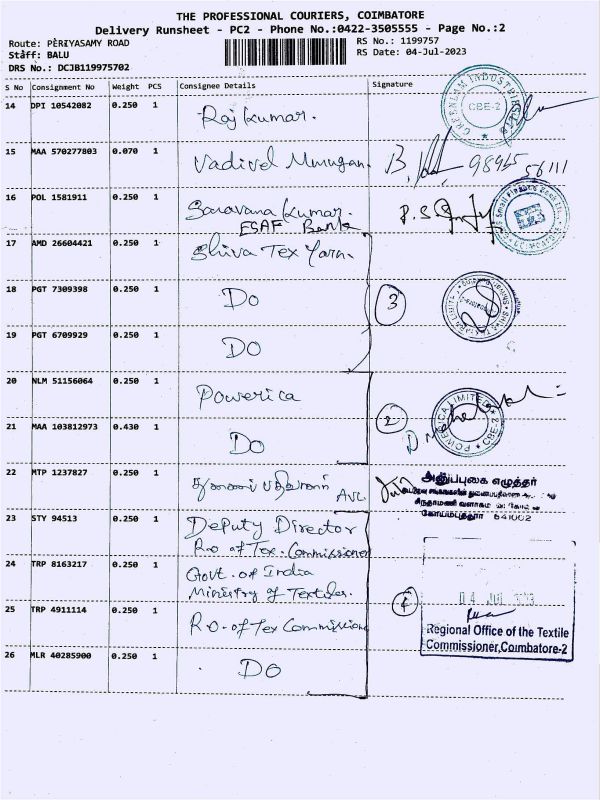 THE PROFESSIONAL COURIERS, COIMBATORE
Delivery Runsheet - PC2 - Phone No.:0422-3505555 - Page No.:2
Route: PERIYASAMY ROAD RS No.: 1199757
Staff: BALU RS Date: 04-Jul-2023
DRS No.: DCJB119975702
S No Consignment No Weight PCS Consignee Details Signature
14 DPI 10542082 0.250 1 Raj Kumar. GREENLAM INDUSTRIES CBE-2
15 MAA 570277803 0.070 1 Vadivel Murugan. 98945 56111
16 POL 1581911 0.250 1 Saravana Kumar. P.S
ESAF Bank
17 AMD 26604421 0.250 1 Shiva Tex Yarn.
18 PGT 7309398 0.250 1 Do 3
19 PGT 6709929 0.250 1 Do
20 NLM 51156064 0.250 1 Powerica
21 MAA 103812973 0.430 1 Do 2 POWERICA LIMITED CBE-2
22 MTP 1237827 0.250 1 AVL
அனுப்புகை எழுத்தர்
சிந்தாமணி வளாகம்
கோயம்புத்தூர் 641002
23 STY 94513 0.250 1 Deputy Director
R.O of Tex. Commissioner
24 TRP 8163217 0.250 1 Govt. of India
Ministry of Textiles.
25 TRP 4911114 0.250 1 R.O. of Tex Commission 4
04 JUL
Regional Office of the Textile
Commissioner, Coimbatore-2
26 MLR 40285900 0.250 1 Do